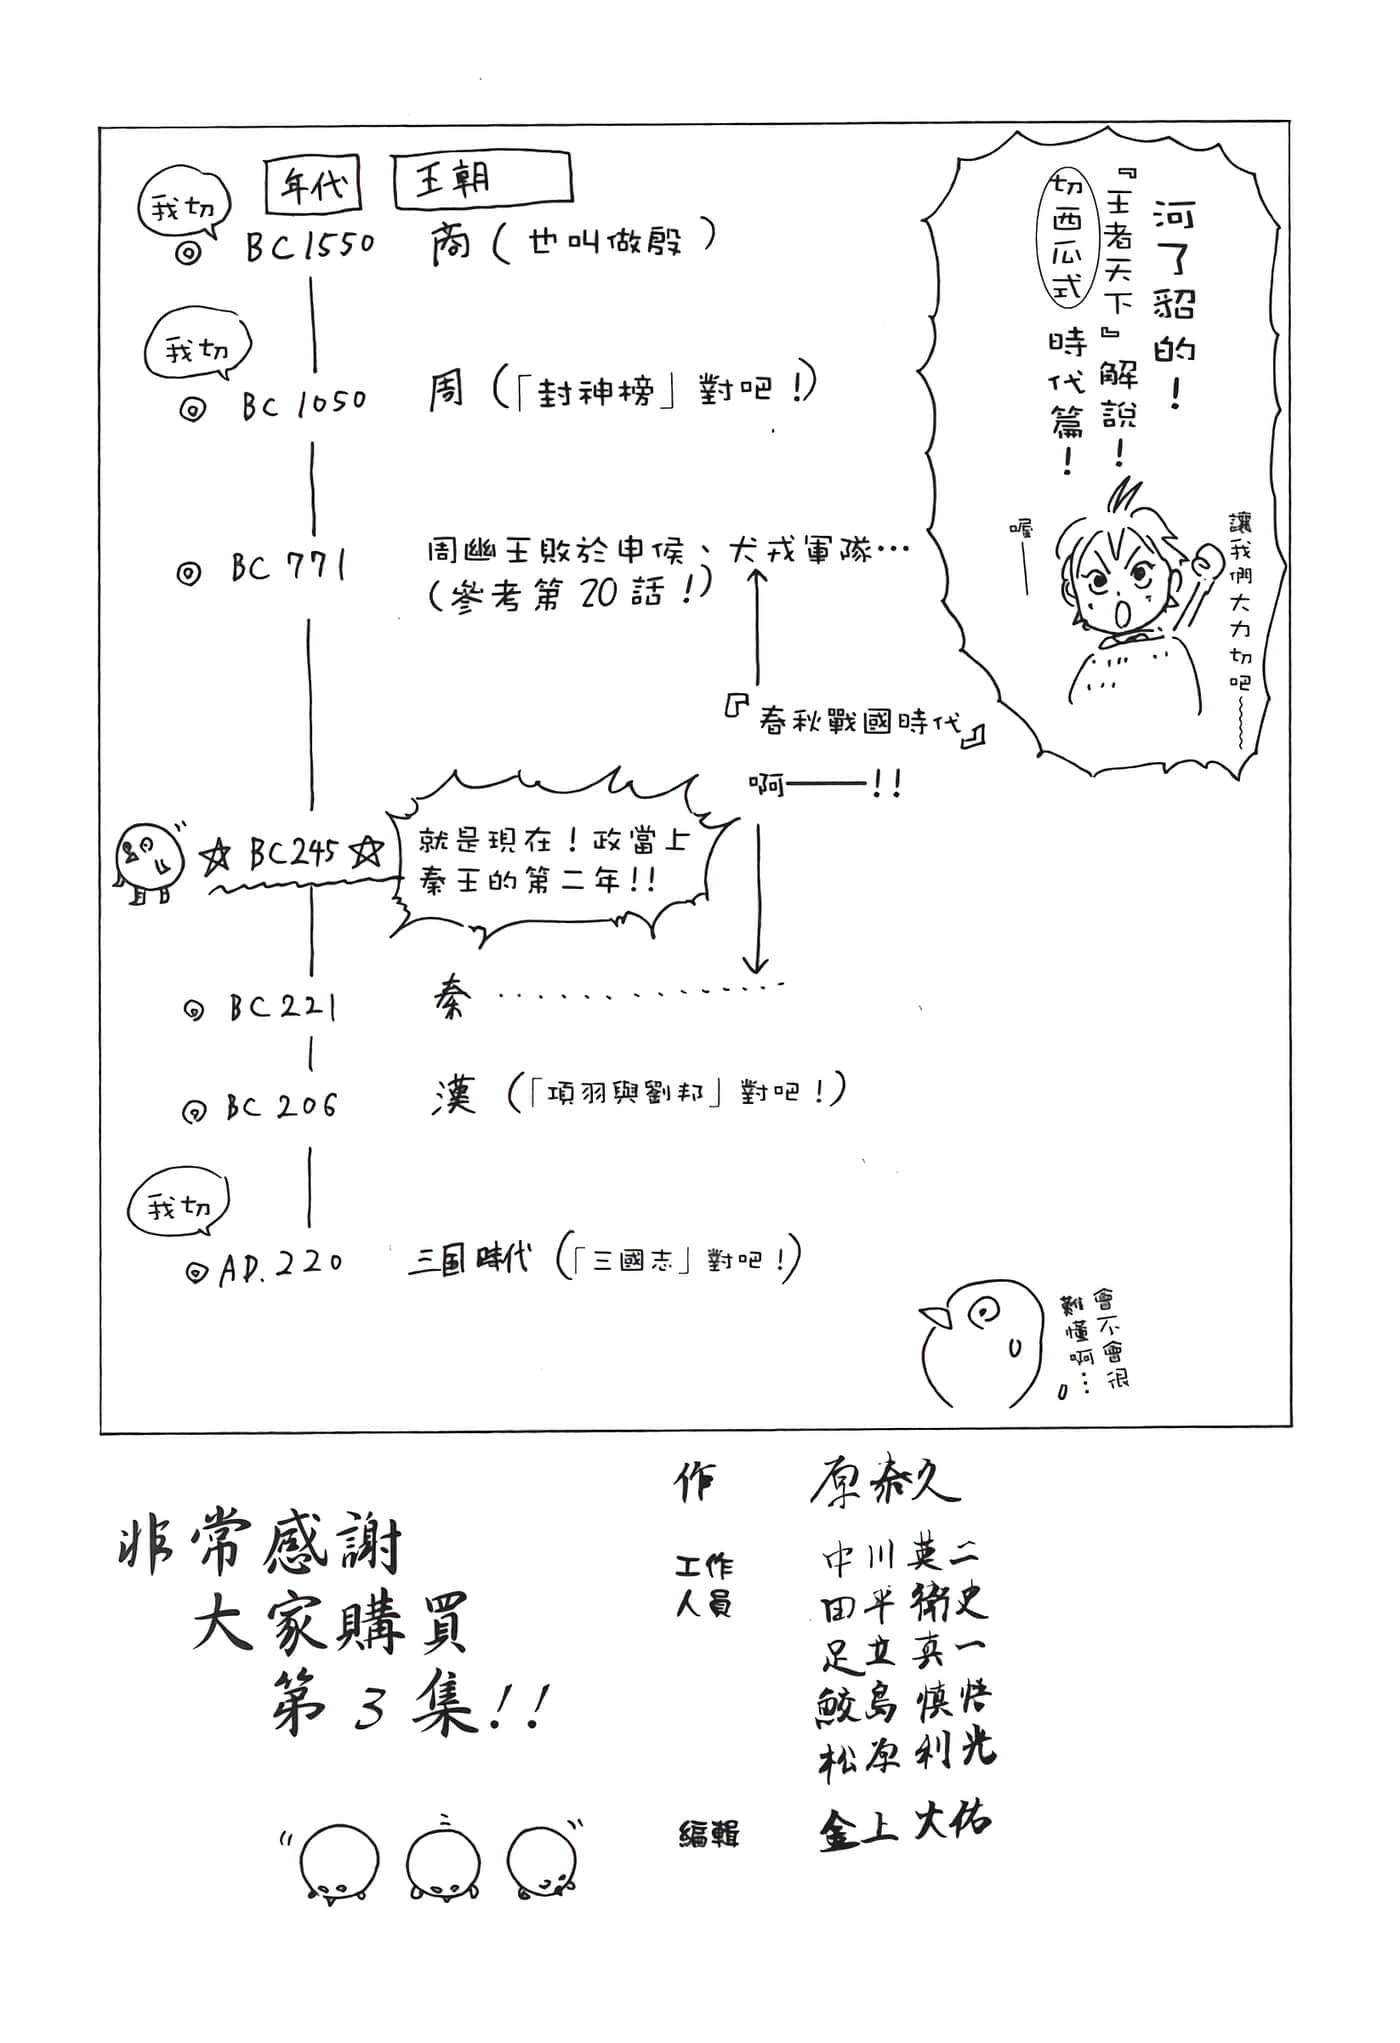 河了貂的！
『王者天下』解說！
切西瓜式時代篇！
讓我們大力切吧～
喔——
年代 王朝
我切
BC1550 商（也叫做殷）
我切
BC 1050 周（「封神榜」對吧！）
BC 771 周幽王敗於申侯、犬戎軍隊…
（參考第20話！）
『春秋戰國時代』
啊——!!
☆ BC245 ☆ 就是現在！政當上
秦王的第二年!!
BC 221 秦 ··············
BC 206 漢（「項羽與劉邦」對吧！）
我切
AD.220 三国時代（「三國志」對吧！）
會不會很
難懂啊…
非常感謝
大家購買
第3集!!
作 原泰久
工作
人員
中川英二
田平衛史
足立真一
鮫島慎悟
松原利光
編輯 金上大佑